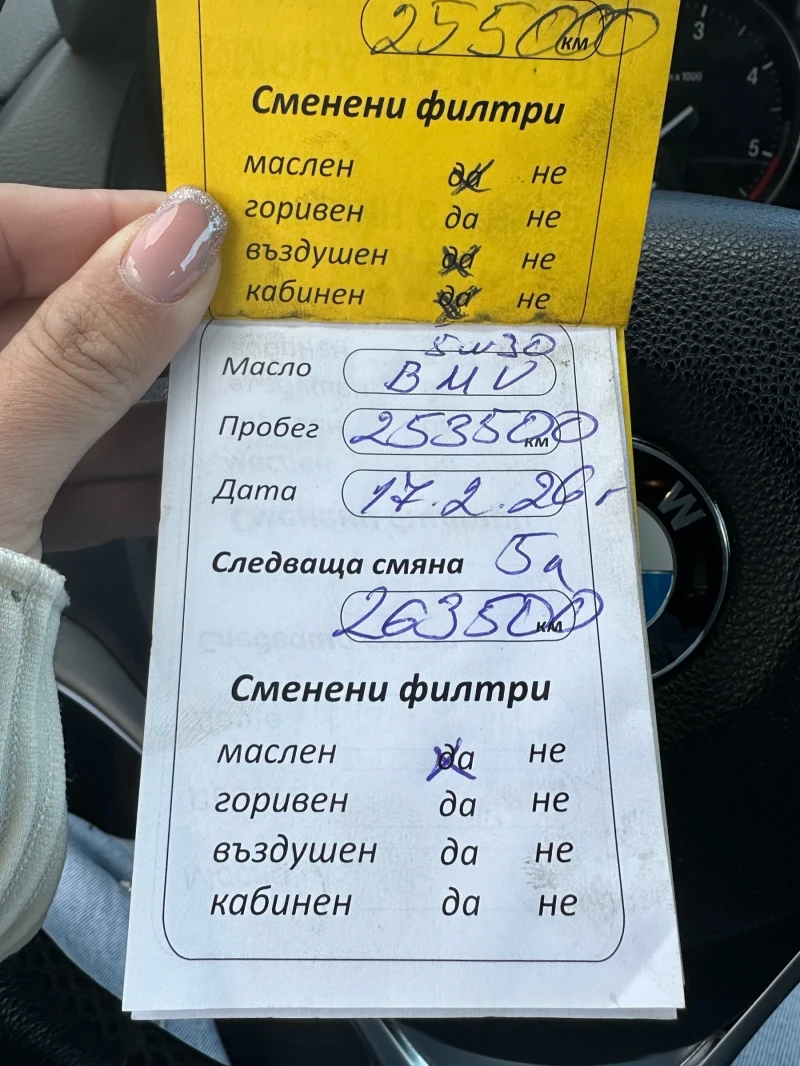 255000 км
Сменени филтри
маслен да не
горивен да не
въздушен да не
кабинен да не
5w30
Масло BMV
Пробег 253500 км
Дата 17.2.26г
Следваща смяна
263500 км
Сменени филтри
маслен да не
горивен да не
въздушен да не
кабинен да не
3
4
5
W